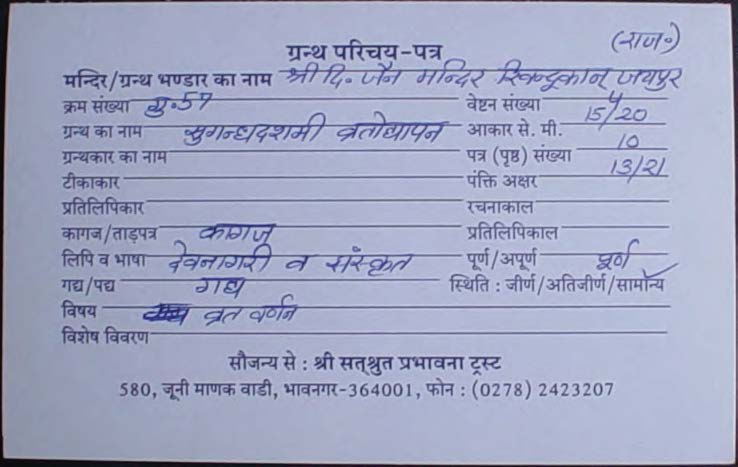 (राज॰)
ग्रन्थ परिचय-पत्र
मन्दिर/ग्रन्थ भण्डार का नाम श्री दि. जैन मन्दिर जयपुर
क्रम संख्या गु.57 वेष्टन संख्या
ग्रन्थ का नाम सुगन्धदशमी व्रतोद्यापन आकार से. मी. 15/20
ग्रन्थकार का नाम पत्र (पृष्ठ) संख्या 10
टीकाकार पंक्ति अक्षर 13/21
प्रतिलिपिकार रचनाकाल
कागज/ताड़पत्र कागज प्रतिलिपिकाल
लिपि व भाषा देवनागरी व संस्कृत पूर्ण/अपूर्ण पूर्ण
गद्य/पद्य गद्य स्थिति : जीर्ण/अतिजीर्ण/सामान्य
विषय व्रत वर्णन
विशेष विवरण
सौजन्य से : श्री सत्श्रुत प्रभावना ट्रस्ट
580, जूनी माणक वाडी, भावनगर-364001, फोन : (0278) 2423207